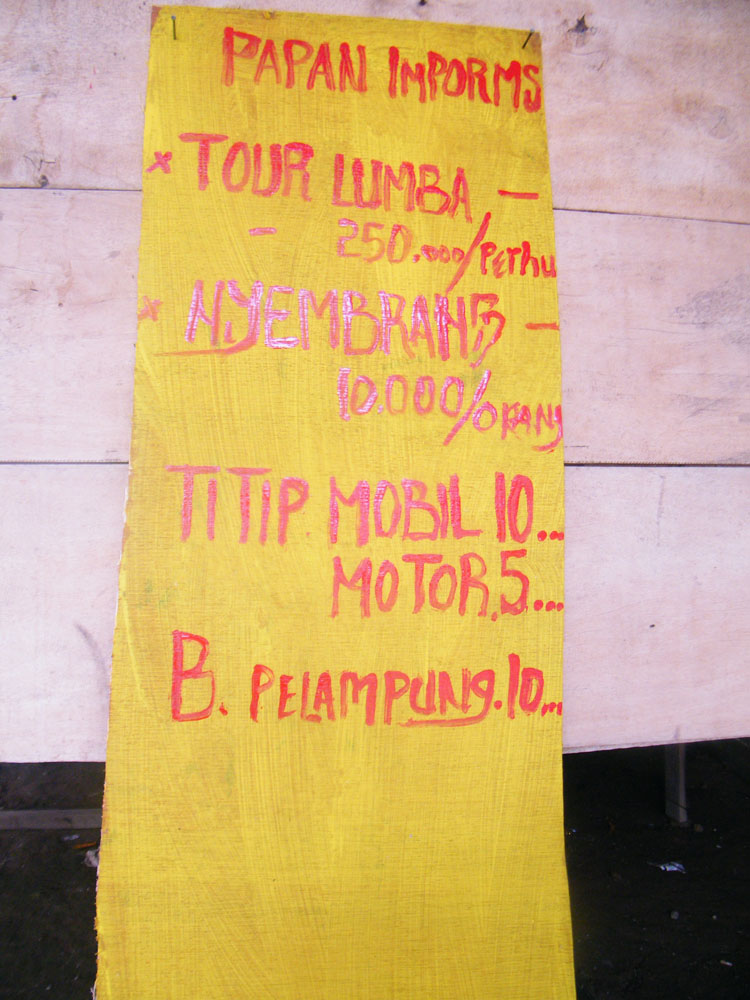 PAPAN IMPORMS
x TOUR LUMBA —
- 250.000/Perhu
x NYEMBRANG —
10.000/ORANG
TITIP MOBIL 10...
MOTOR. 5...
B. PELAMPUNG. 10...